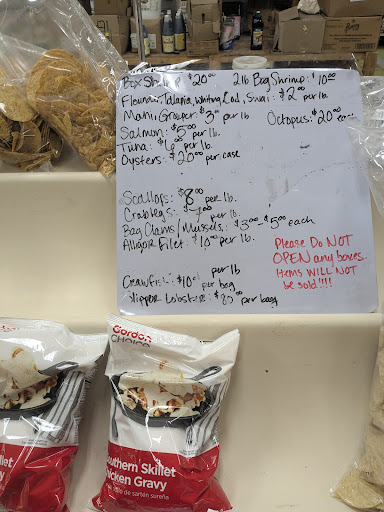 Box Shrimp $20.00 2lb Bag Shrimp: $10.00
Flounder, Talapia, Whiting, Cod, Swai: $2.00 per lb.
Mahi, Grouper: $3.00 per lb Octopus: $20.00
Salmon: $5.00 per lb.
Tuna: $6.00 per lb.
Oysters: $20.00 per case
Scallops: $8.00 per lb.
Crablegs: $7.00 per lb.
Bag Clams/Mussels: $3.00-$5.00 each
Alligator Filet: $10.00 per lb.
Please Do NOT
OPEN any boxes.
Items WILL NOT
be sold!!!!
per lb
Crawfish: $10.00 per bag
Slipper Lobster: per bag
Gordon
CHOICE
Southern Skillet
Chicken Gravy
de sartén sureña